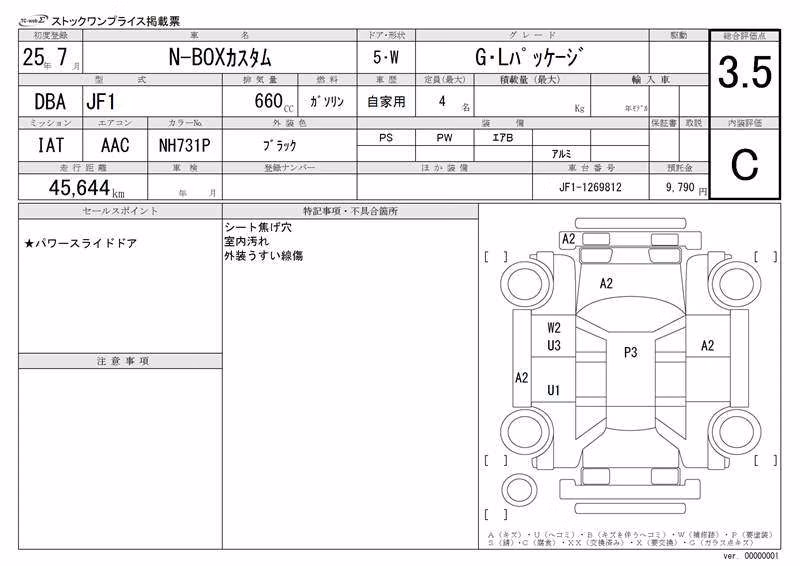 TC-webΣ ストックワンプライス掲載票
初度登録 車名 ドア・形状 グレード 駆動 総合評価点
25年7月 N-BOXカスタム 5・W G・Lパッケージ 3.5
型式 排気量 燃料 車歴 定員(最大) 積載量(最大) 輸入車
DBA JF1 660CC ガソリン 自家用 4名 Kg 年モデル
ミッション エアコン カラーNo. 外装色 装備 保証書 取説 内装評価
IAT AAC NH731P ブラック PS PW エアB C
アルミ
走行距離 車検 登録ナンバー ほか装備 車台番号 預託金
45,644km 年 月 JF1-1269812 9,790円
セールスポイント
★パワースライドドア
注意事項
特記事項・不具合箇所
シート焦げ穴
室内汚れ
外装うすい線傷
A2
[ ] [ ]
A2
W2
U3 P3 A2
A2
U1
[ ] [ ]
[ ]
A(キズ)・U(ヘコミ)・B(キズを伴うヘコミ)・W(補修跡)・P(要塗装)
S(錆)・C(腐食)・XX(交換済み)・X(要交換)・G(ガラス点キズ)
ver. 00000001